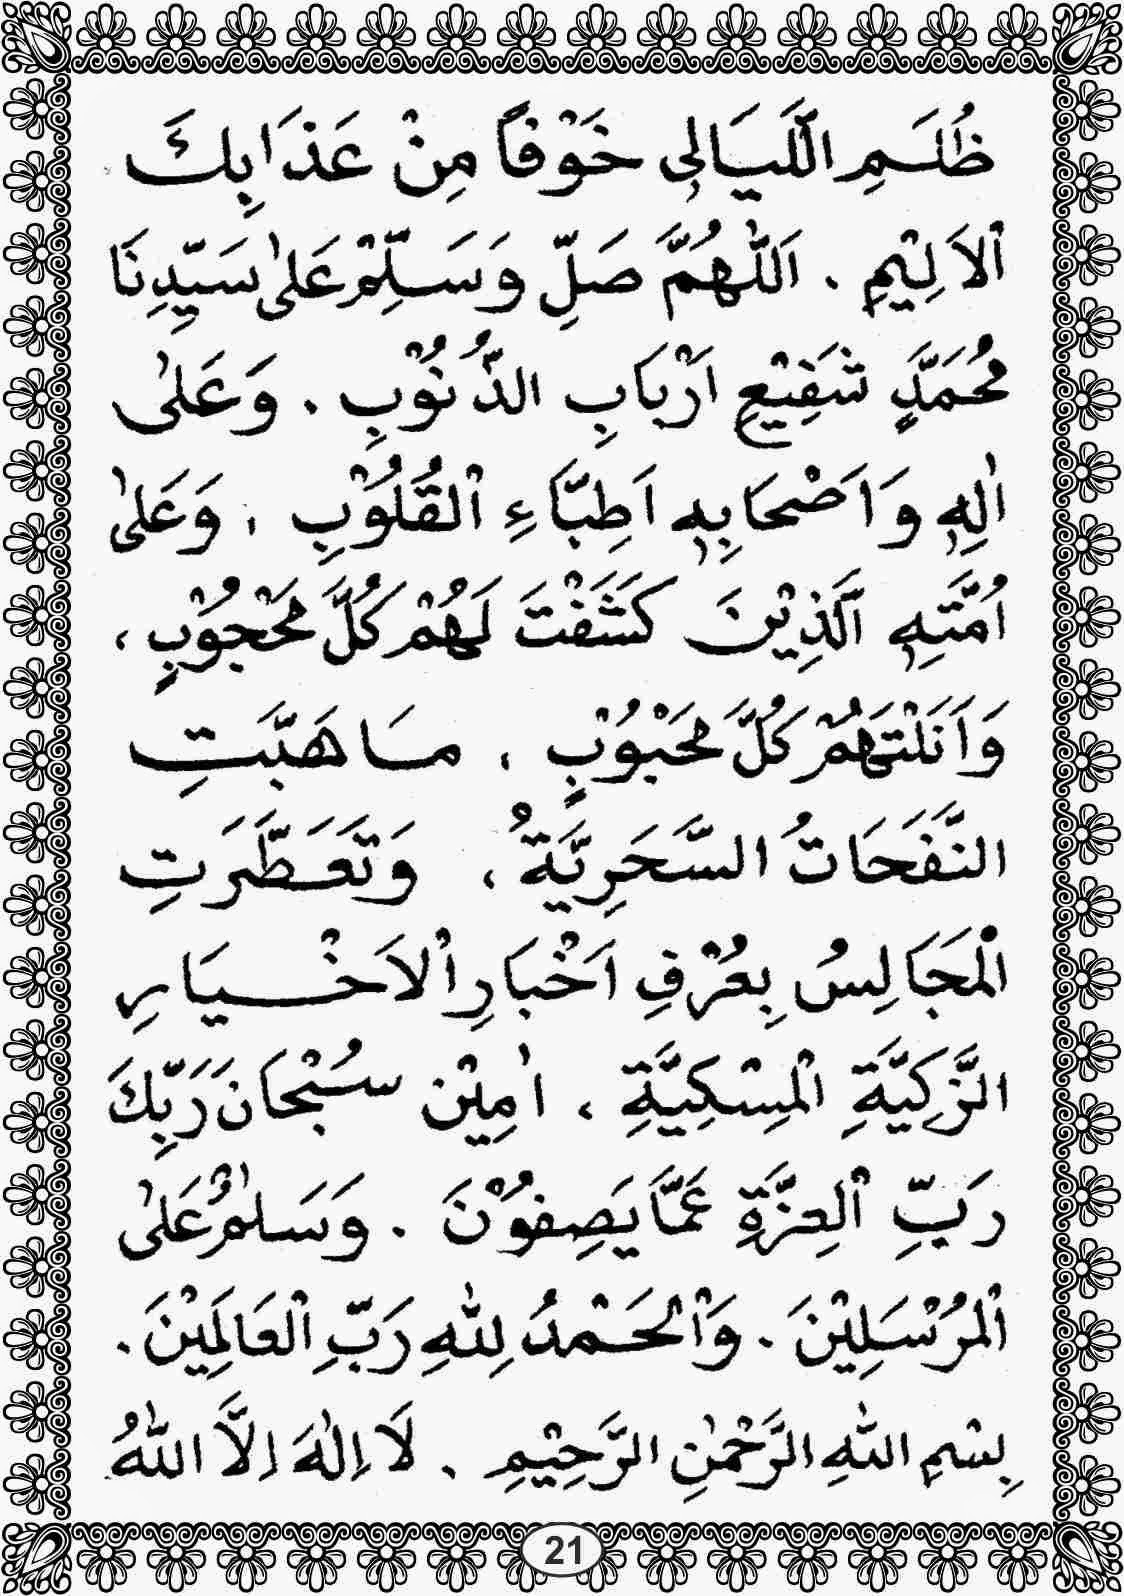 ظُلَمِ الَّليَالِى خَوْفًا مِنْ عَذَابِكَ
اْلاَلِيْمِ . اَللّٰهُمَّ صَلِّ وَسَلِّمْ عَلٰى سَيِّدِنَا
مُحَمَّدٍ شَفِيْعِ اَرْبَابِ الذُّنُوْبِ . وَعَلٰى
اٰلِهٖ وَاَصْحَابِهٖ اَطِبَّاءِ اْلقُلُوْبِ ، وَعَلٰى
اُمَّتِهٖ الَّذِيْنَ كَشَفْتَ لَهُمْ كُلَّ مَحْجُوْبٍ ،
وَاَنَلْتَهُمْ كُلَّ مَحْبُوْبٍ ، مَا هَبَّتِ
النَّفَحَاتُ السَّحَرِيَّةُ ، وَتَعَطَّرَتِ
اْلمَجَالِسُ بِعُرْفِ اَخْبَارِ اْلاَخْيَارِ
الزَّكِيَّةِ اْلمِسْكِيَّةِ ، اٰمِيْن سُبْحَانَ رَبِّكَ
رَبِّ اْلعِزَّةِ عَمَّا يَصِفُوْنَ . وَسَلٰمٌ عَلٰى
اْلمُرْسَلِيْنَ . وَاْلحَمْدُ لِلّٰهِ رَبِّ اْلعَالَمِيْنَ .
بِسْمِ اللّٰهِ الرَّحْمٰنِ الرَّحِيْمِ . لَا اِلٰهَ اِلَّا اللّٰهُ
21